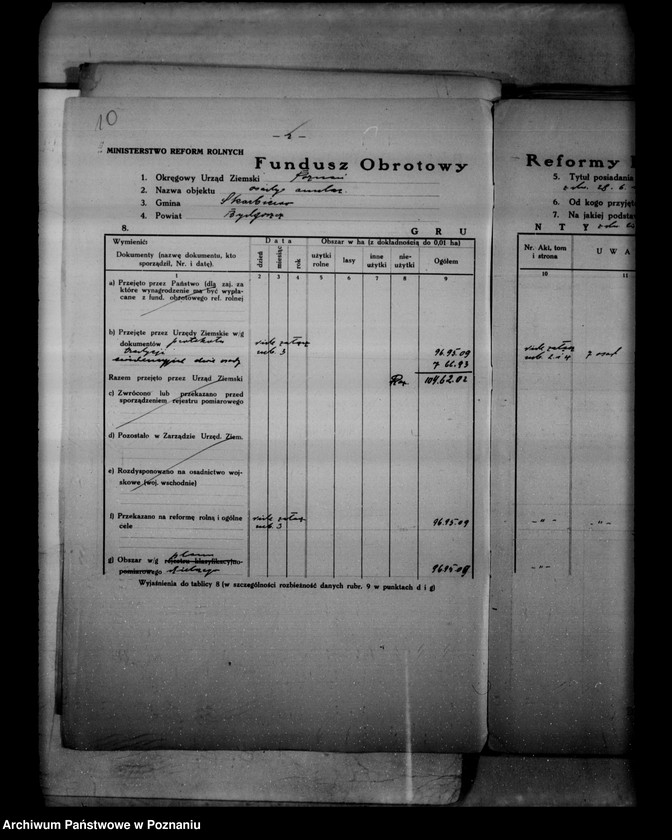 10
MINISTERSTWO REFORM ROLNYCH
Fundusz Obrotowy
1. Okręgowy Urząd Ziemski Poznań
2. Nazwa objektu osady
3. Gmina
4. Powiat Bydgoszcz
8. G R U
Wymienić:
Dokumenty (nazwę dokumentu, kto sporządził, Nr. i datę).
Data
dzień
miesiąc
rok
Obszar w ha (z dokładnością do 0,01 ha)
użytki rolne
lasy
inne użytki
nie-użytki
Ogółem
1 2 3 4 5 6 7 8 9
a) Przejęto przez Państwo (dla zaj. za
które wynagrodzenie ma być wypła-
cane z fund. obrotowego ref. rolnej
b) Przejęte przez Urzędy Ziemskie w/g
dokumentów protokołu
96.95.09
7 66.93
Razem przejęto przez Urząd Ziemski 104.62.02
c) Zwrócono lub przekazano przed
sporządzeniem rejestru pomiarowego
d) Pozostało w Zarządzie Urzęd. Ziem.
e) Rozdysponowano na osadnictwo woj-
skowe (woj. wschodnie)
f) Przekazano na reformę rolną i ogólne vide załącz.
cele sub. 3 96.95.09
g) Obszar w/g rejestru klasyfikacyjno- planu
pomiarowego 96.95.09
Wyjaśnienia do tablicy 8 (w szczególności rozbieżność danych rubr. 9 w punktach d i g)
Reformy
5. Tytuł posiadania
6. Od kogo przyjęt
7. Na jakiej podstaw
N T Y
Nr. Akt, tom
i strona
U W A
10 11
vide załącz
sub 2 i 4 7 osad
Archiwum Państwowe w Poznaniu